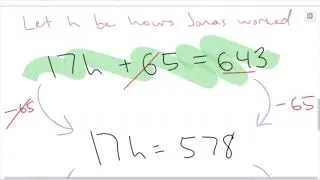 Let h be hours Jonas worked
17h + 65 = 643
-65 -65
17h = 578